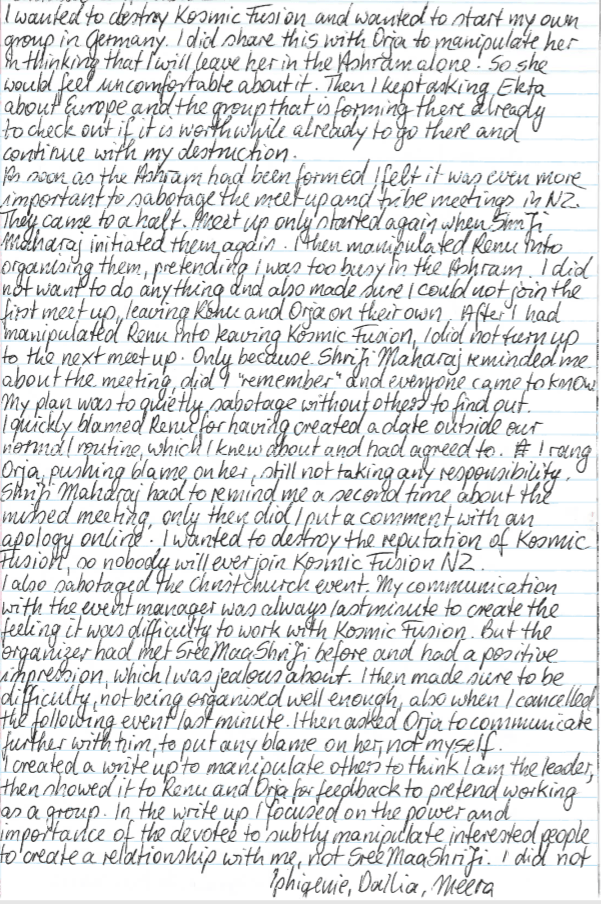 I wanted to destroy Kosmic Fusion and wanted to start my own
group in Germany. I did share this with Orja to manipulate her
in thinking that I will leave her in the Ashram alone. So she
would feel uncomfortable about it. Then I kept asking Ekta
about Europe and the group that is forming there already
to check out if it is worthwhile already to go there and
continue with my destruction.
As soon as the Ashram had been formed I felt it was even more
important to sabotage the meet up and tribe meetings in NZ.
They came to a halt. Meet up only started again when ShriJi
Maharaj initiated them again. I then manipulated Renu into
organising them, pretending I was too busy in the Ashram. I did
not want to do anything and also made sure I could not join the
first meet up, leaving Renu and Orja on their own. After I had
manipulated Renu into leaving Kosmic Fusion, I did not turn up
to the next meet up. Only because ShriJi Maharaj reminded me
about the meeting, did I "remember" and everyone came to know.
My plan was to quietly sabotage without others to find out.
I quickly blamed Renu for having created a date outside our
normal routine, which I knew about and had agreed to. I rang
Orja, pushing blame on her, still not taking any responsibility.
ShriJi Maharaj had to remind me a second time about the
missed meeting, only then did I put a comment with an
apology online. I wanted to destroy the reputation of Kosmic
Fusion, so nobody will ever join Kosmic Fusion NZ.
I also sabotaged the christchurch event. My communication
with the event manager was always last minute to create the
feeling it was difficulty to work with Kosmic Fusion. But the
organizer had met SreeMaaShriJi before and had a positive
impression, which I was jealous about. I then made sure to be
difficulty, not being organised well enough, also when I cancelled
the following event last minute. I then asked Orja to communicate
further with him, to put any blame on her, not myself.
I created a write up to manipulate others to think I am the leader,
then showed it to Renu and Orja for feedback to pretend working
as a group. In the write up I focused on the power and
importance of the devotee to subtly manipulate interested people
to create a relationship with me, not SreeMaaShriJi. I did not
Iphigenie, Dailia, Meera